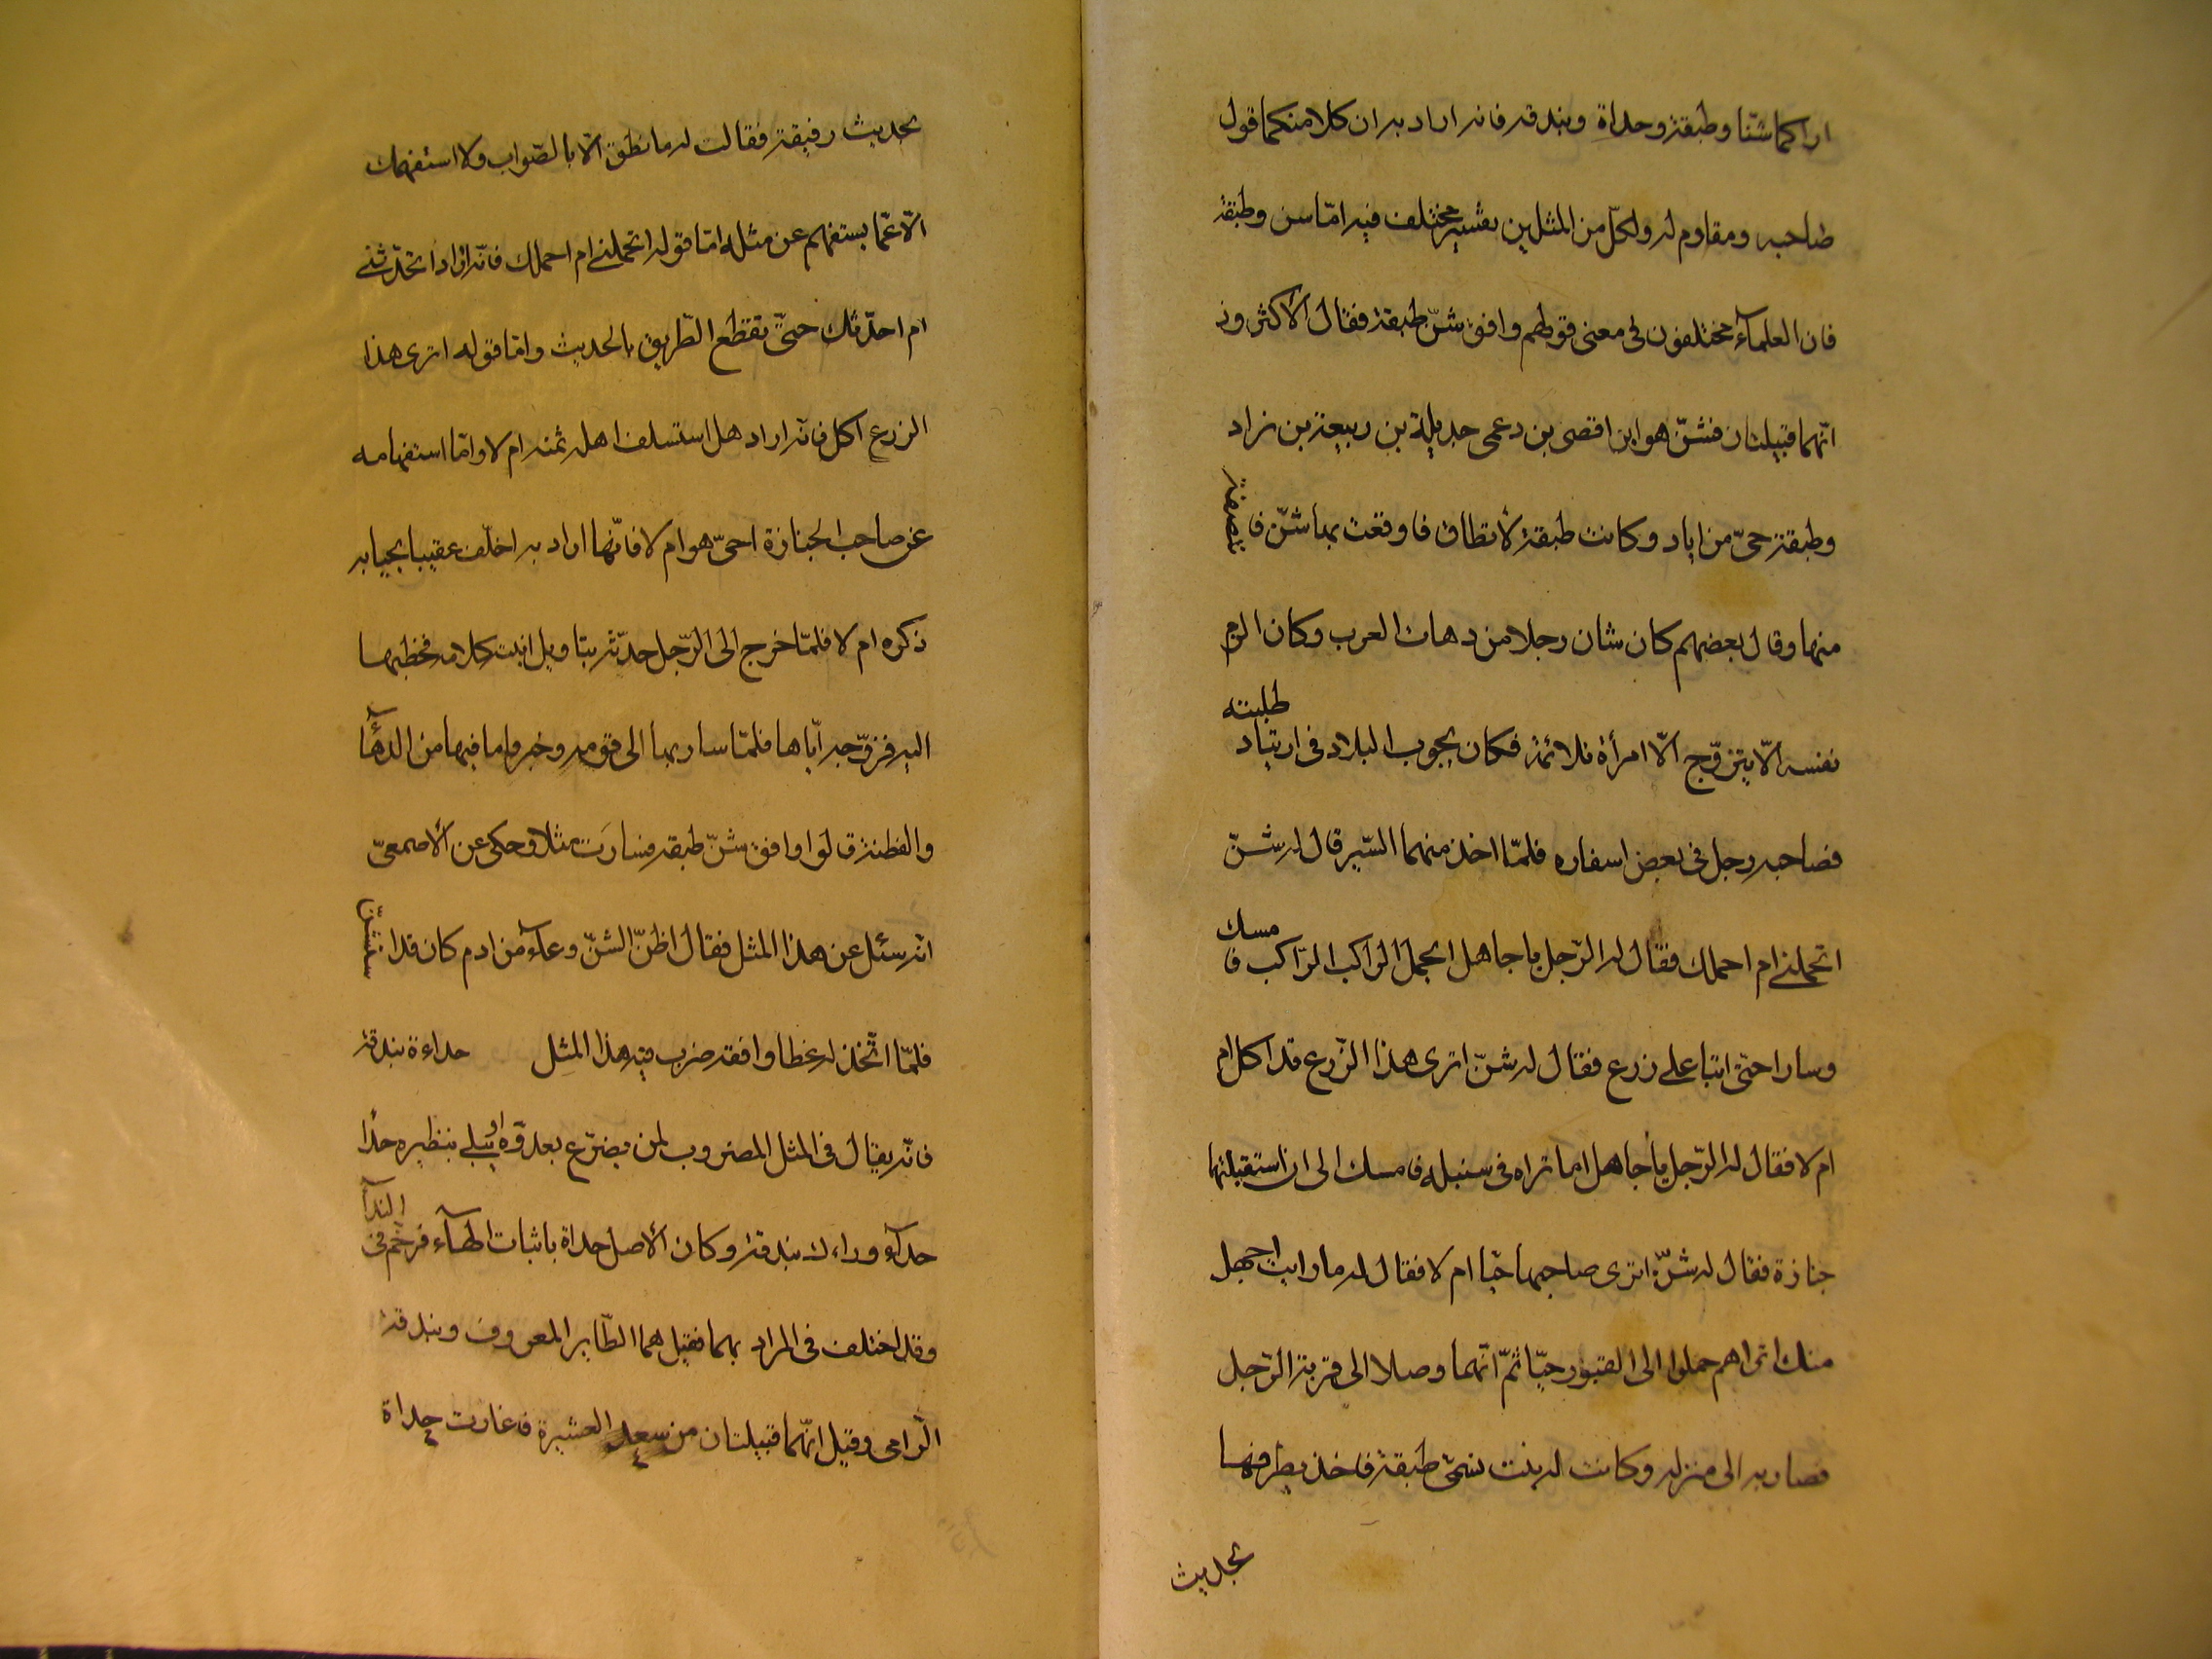 اراكما شنّا وطبقة وحداة وبندقه فانه اراد به ان كلا منكما قول
صاحبه ومقاوم له ولكلّ من المثلين تفسير مختلف فيه امّا سن وطبقة
فان العلمآء مختلفون في معنى قولهم وافق شنّ طبقة فقال الأكثرون
انّهما قبيلتان فشنّ هو ابن افصى بن دعمى جديلة بن ربيعة بن نزاد
وطبقة حىّ من اياد وكانت طبقة لأ تطاق فاوقعت بها شنّ فانتصفت
منها وقال بعضهم كان شان رجلا من دهات العرب وكان الزم
نفسه الّا يتزوّج الّا امرأة تلائمه فكان يجوب البلاد في ارتياد طلبته
فصاحبه رجل في بعض اسفاره فلمّا اخذ منهما السّير قال له شنّ
اتحملني ام احملك فقال له الرّجل يا جاهل ايحمل الراكب الرّاكب فامسك
وسارا حتّى اتيا على زرع فقال له شنّ اترى هذا الزّرع قد اكل ام
ام لا فقال له الرّجل يا جاهل اما تراه في سنبله فامسك الى ان استقبلتهما
جنازة فقال له شنّ اترى صاحبها حيّا ام لا فقال له ما رايت اجهل
منك اتراهم حملوا الى القبور حيّا ثمّ انّهما وصلا الى قرية الرّجل
فصار به الى منزله وكانت له بنت تسمّى طبقة فاخذ يطرفها
بحديث
بحديث رفيقه فقالت له ما نطق الّا بالصّواب ولا استفهمك
الّا عمّا يستفهم عن مثله امّا قوله اتحملني ام احملك فانّه اراد اتحدّثني
ام احدّثك حتّى نقطع الطّريق بالحديث وامّا قوله اترى هذا
الزرع اكل فانّه اراد هل استسلف اهله ثمنه ام لا وامّا استفهامه
عن صاحب الجنازة احىّ هو ام لا فانّها اراد به اخلّف عقيبا يحيا به
ذكره ام لا فلمّا خرج الى الرّجل حدّثه بتاويل ابنته كلامه فخطبها
اليه فزوّجه ايّاها فلمّا سار بها الى قومه وخبروا ما فيها من الدهآء
والفطنة قالوا وافق شنّ طبقه فسارت مثلا وحكى عن الأصمعىّ
انّه سئل عن هذا المثل فقال اظنّ الشنّ وعآء من ادم كان قد استشنّ
فلمّا اتّخذ له غطا وافقه ضرب فيه هذا المثل حداءة بندقة
فانّه يقال في المثل المضروب لمن يضرّع بعدوّه او يبلى بنظيره حدأ
حدآء وراءك بندقة وكان الأصل حداة باثبات الهآء فرخّم في الندآء
وقد اختلف في المراد بهما فقيل هما الطّاير المعروف وبندقة
الرّامى وقيل انّهما قبيلتان من سعد العشيرة فاغارت حداة